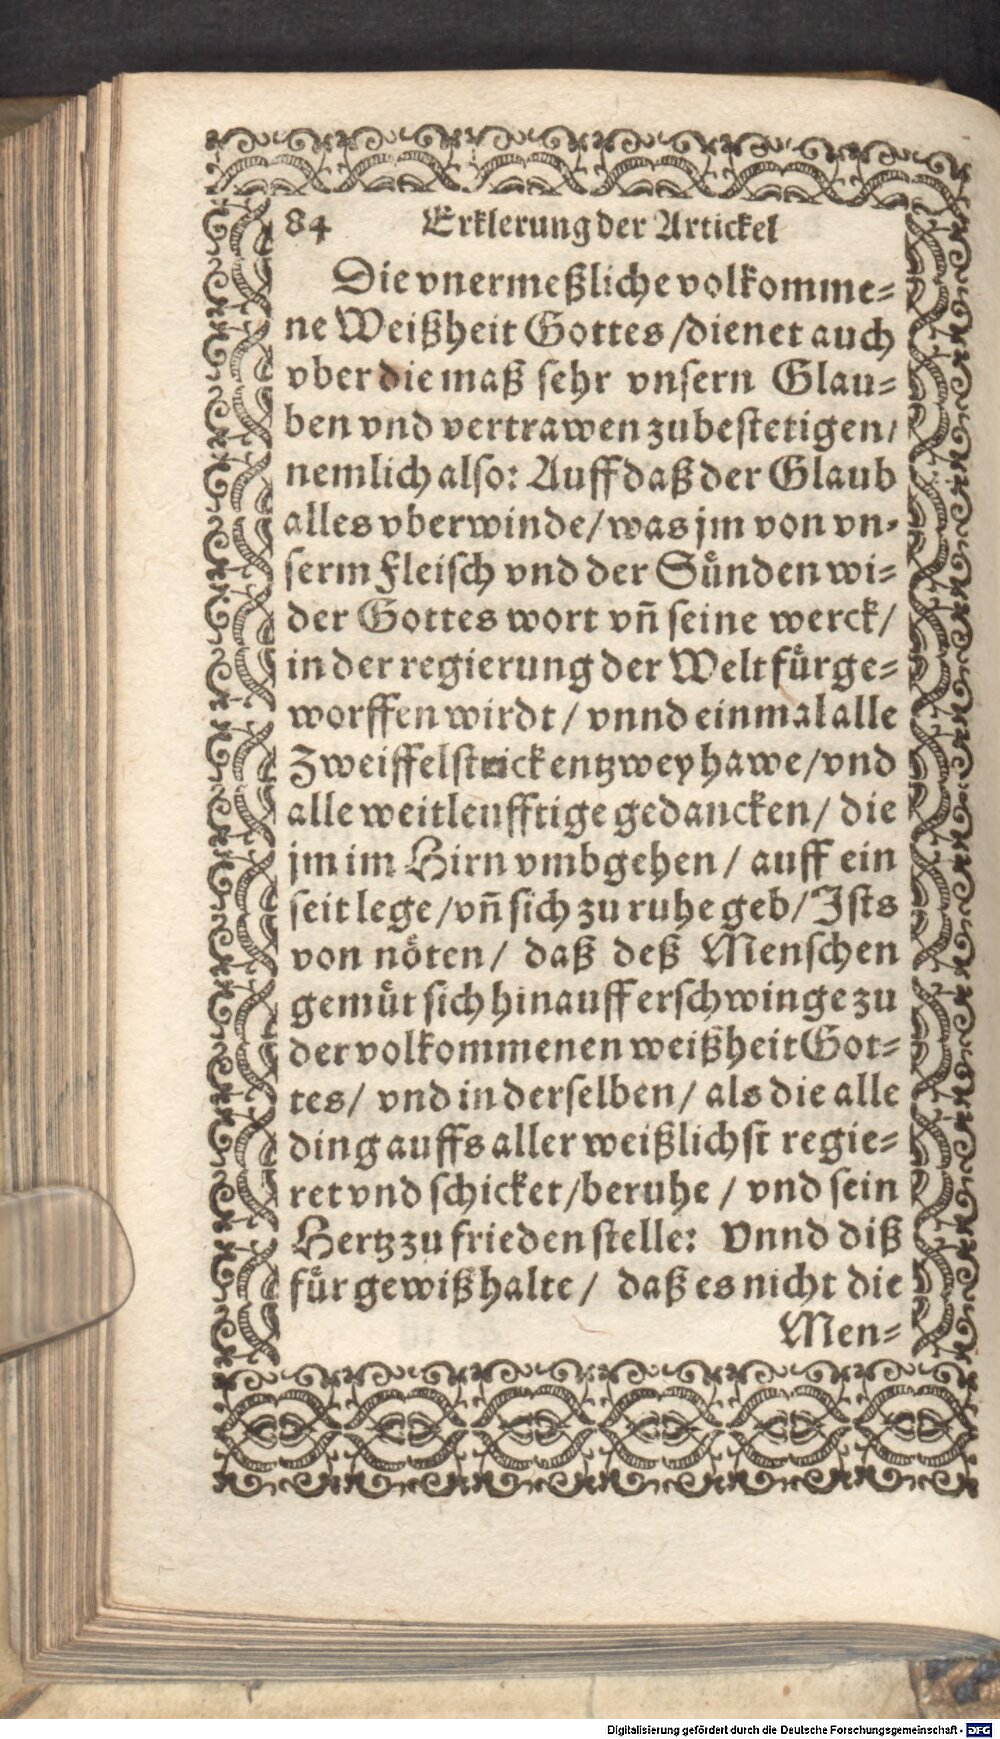 84 Erklerung der Artickel
Die vnermeßliche volkomme=
ne Weißheit Gottes /dienet auch
vber die maß sehr vnsern Glau=
ben vnd vertrawen zubestetigen/
nemlich also: Auff daß der Glaub
alles vberwinde/was jm von vn=
serm Fleisch vnd der Sünden wi=
der Gottes wort vñ seine werck/
in der regierung der Welt fürge=
worffen wirdt / vnnd einmal alle
Zweiffelstrick entzwey hawe/vnd
alle weitleufftige gedancken/ die
jm im Hirn vmbgehen / auff ein
seit lege/vñ sich zu ruhe geb/Ists
von nöten/ daß deß Menschen
gemüt sich hinauff erschwinge zu
der volkommenen weißheit Got=
tes/ vnd in derselben/ als die alle
ding auffs aller weißlichst regie=
ret vnd schicket/beruhe / vnd sein
Hertz zu frieden stelle: Vnnd diß
für gewiß halte / daß es nicht die
Men=
Digitalisierung gefördert durch die Deutsche Forschungsgemeinschaft - DFG